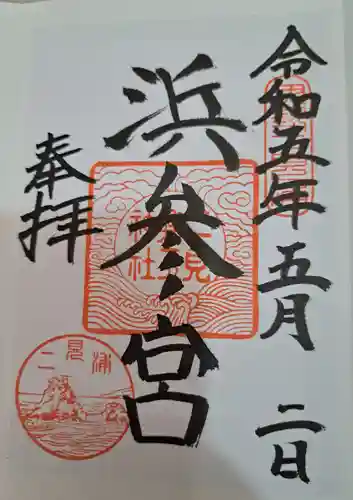 令和五年五月二日
浜参宮
奉拝
二見
興玉
神社
二見浦